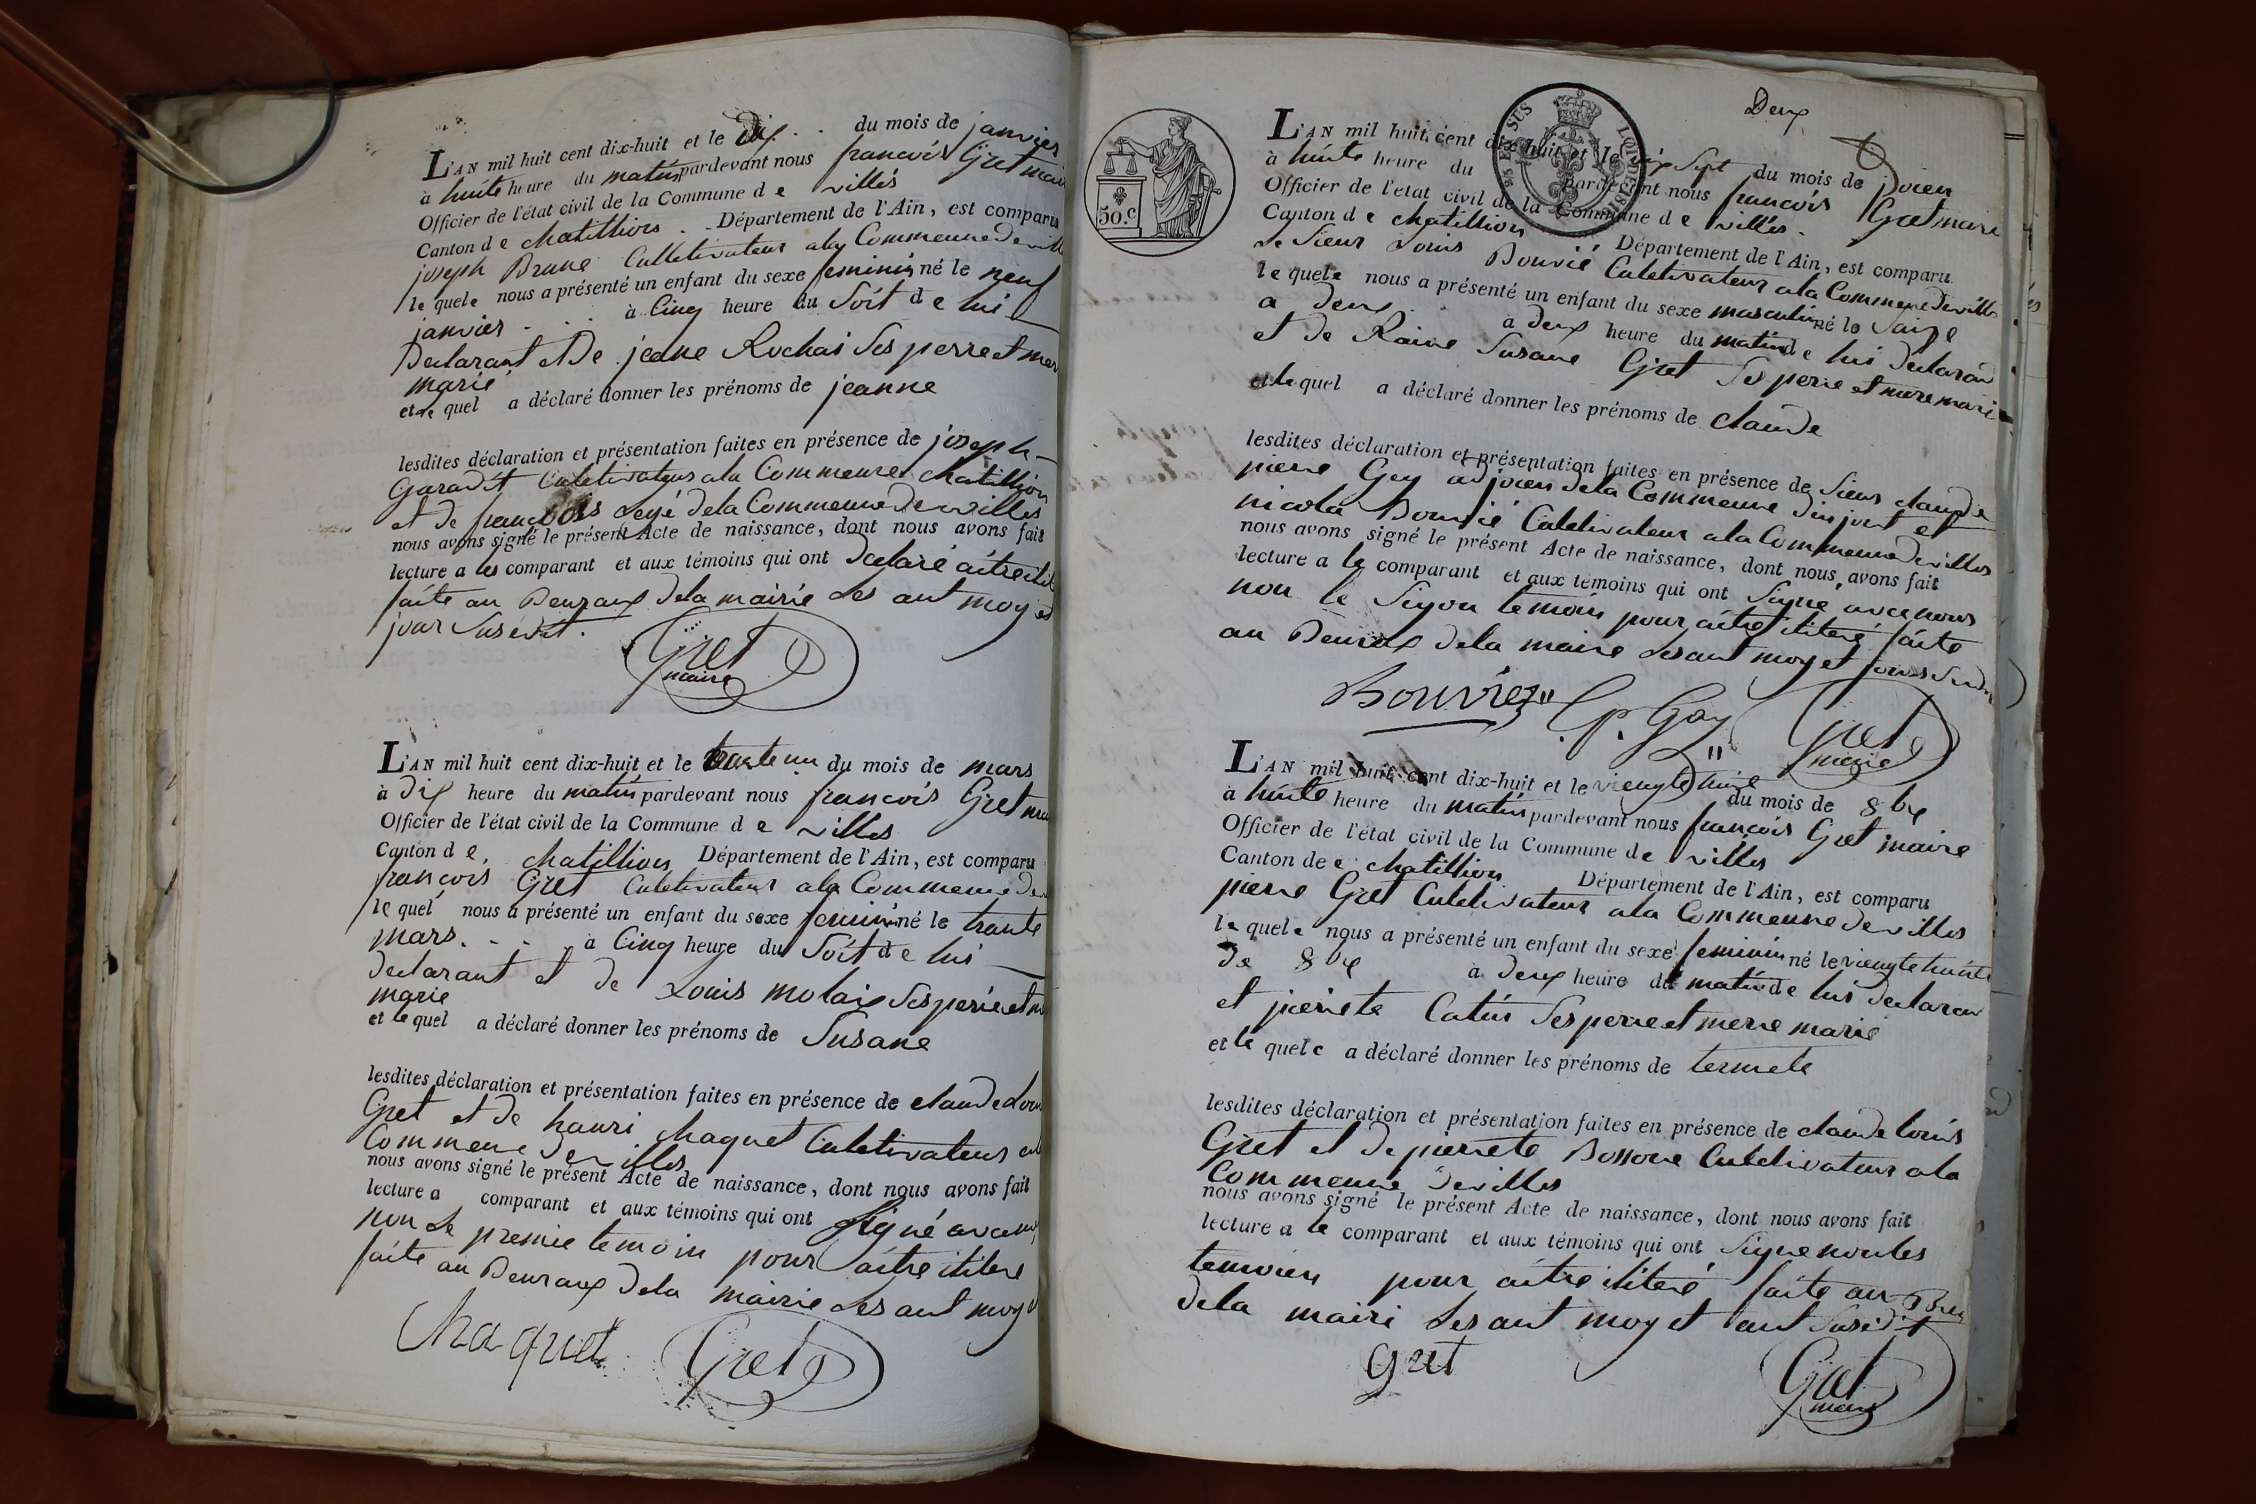 L'AN mil huit cent dix-huit et le dix du mois de janvier
à huite heure du matin pardevant nous francois Gret mair
Officier de l'état civil de la Commune d e villes
Canton d e chatillion Département de l'Ain, est comparu
joseph Brune Culletivateur ala Commeune de ville
le quele nous a présenté un enfant du sexe feminin né le neuf
janvier à Cinq heure du Soit d e lui
Declarant et De jeane Rochai Ses perre et mer
marié
et le quel a déclaré donner les prénoms de jeanne
lesdites déclaration et présentation faites en présence de joseph
Garadit Culetivateur ala Commeune chatillion
et de francois Leyé dela Commeune de villes
nous avons signé le présent Acte de naissance, dont nous avons fait
lecture a les comparant et aux témoins qui ont declaré aitre itil
faite au Beuraux dela mairie Les ant moy et
jour Susedit.
Gret
maire
L'AN mil huit cent dix-huit et le trante un du mois de mars
à Dix heure du matin pardevant nous francois Gret mai
Officier de l'état civil de la Commune d e villes
Canton d e chatillion Département de l'Ain, est comparu
francois Gret Culetivateur ala Commeune de
le quel nous a présenté un enfant du sexe feminin né le trante
mars. à Cinq heure du Soit d e lui
declarant et de Louis molaix Ses perre et m
marie
et le quel a déclaré donner les prénoms de Susane
lesdites déclaration et présentation faites en présence de claude Loui
Gret et de hanri chaquet Culetivateur al
Commeune de villes
nous avons signé le présent Acte de naissance, dont nous avons fait
lecture a comparant et aux témoins qui ont Signé avec nou
non Le premie temoin pour aitre ititere
faite au Beuraux dela mairie Les ant moy e
Chaquet Gret
Deux
L'AN mil huit cent dix-huit et le dix Sept du mois de
à huite heure du pardevant nous francois Gret mari
Officier de l'etat civil de la Commune d e villes.
Canton d e chatillion Département de l'Ain, est comparu
Le Sieur Louis Bouvié Culetivateur ala Commeune de ville
le quele nous a présenté un enfant du sexe masculin né le Saize
a deux à deux heure du matin d e lui declaran
et de Raine Susane Gret Ses perre et mere marie
et le quel a déclaré donner les prénoms de claude
lesdites déclaration et présentation faites en présence de Sieur claude
pierre Gey adjoien dela Commeune dinjout et
nicola Bouvié Culetivateur ala Commeune de villes
nous avons signé le présent Acte de naissance, dont nous avons fait
lecture a le comparant et aux témoins qui ont Signé avec nous
non le Segon temoin pour aitre ititeré faite
au Beuraux dela mairie Les ant moy et jour Susdi
Bouvier C. p. Gay Gret
maire
L'AN mil huit cent dix-huit et le viengte huite du mois de 8bre
à huite heure du matin pardevant nous francois Gret maire
Officier de l'état civil de la Commune d e villes
Canton de e chatillion Département de l'Ain, est comparu
pierre Gret Culetivateur ala Commeune de villes
le quele nous a présenté un enfant du sexe feminin né le viengte huite
de 8bre à deux heure du matin d e lui declaran
et pierrete Catin Ses perre et merre marie
et le quele a déclaré donner les prénoms de termete
lesdites déclaration et présentation faites en présence de claude louis
Gret et de pierrete Bossone Culetivateur ala
Commeune de villes
nous avons signé le présent Acte de naissance, dont nous avons fait
lecture a le comparant et aux témoins qui ont Signe non les
temoien pour aitre ititeré faite au Beu
dela mairi Les ant moy et ant Susedit
Gret Gret
maire
50.c